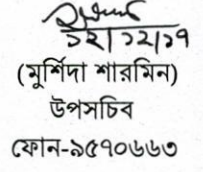 ১২/১২/১৭
(মুর্শিদা শারমিন)
উপসচিব
ফোন-৯৫৭০৬৬৩